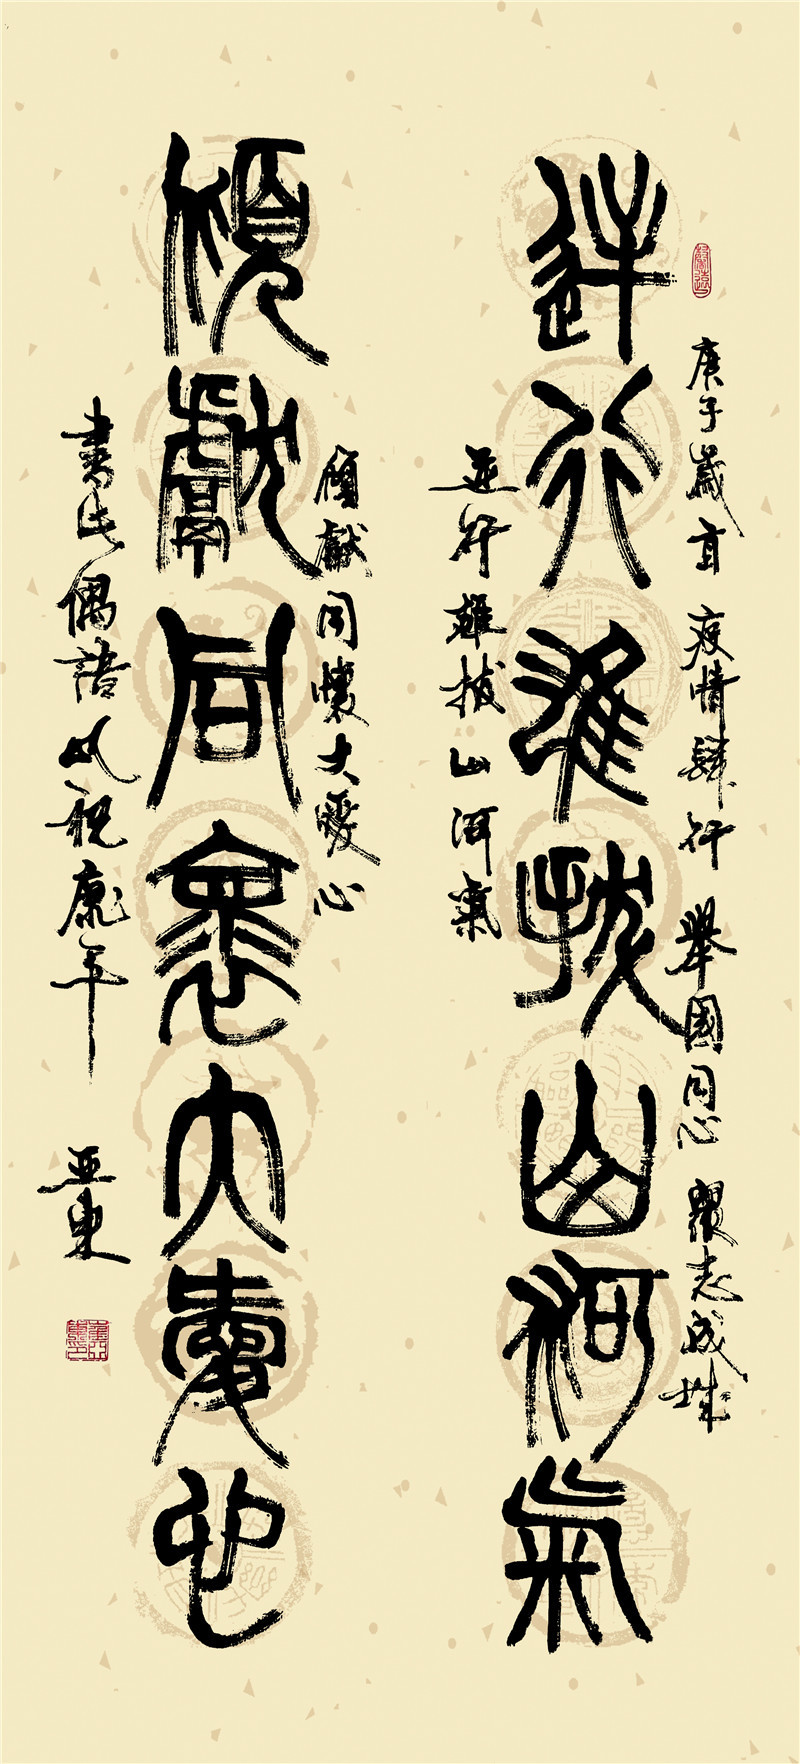 庚子歲首 疫情肆行 舉國同心 眾志成城
逆行雄拔山河氣
逆行雄拔山河氣
傾獻同懷大愛心
傾獻同懷大愛心
書此偶語以祝康年 亞東